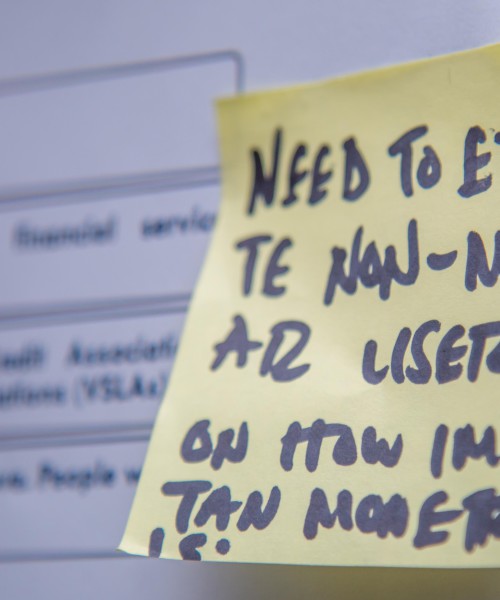 financial service
Associati
(VSLAs)
People w
NEED TO E
TE NON-N
AR LISET
ON HOW IM
TAN MONER
IS: